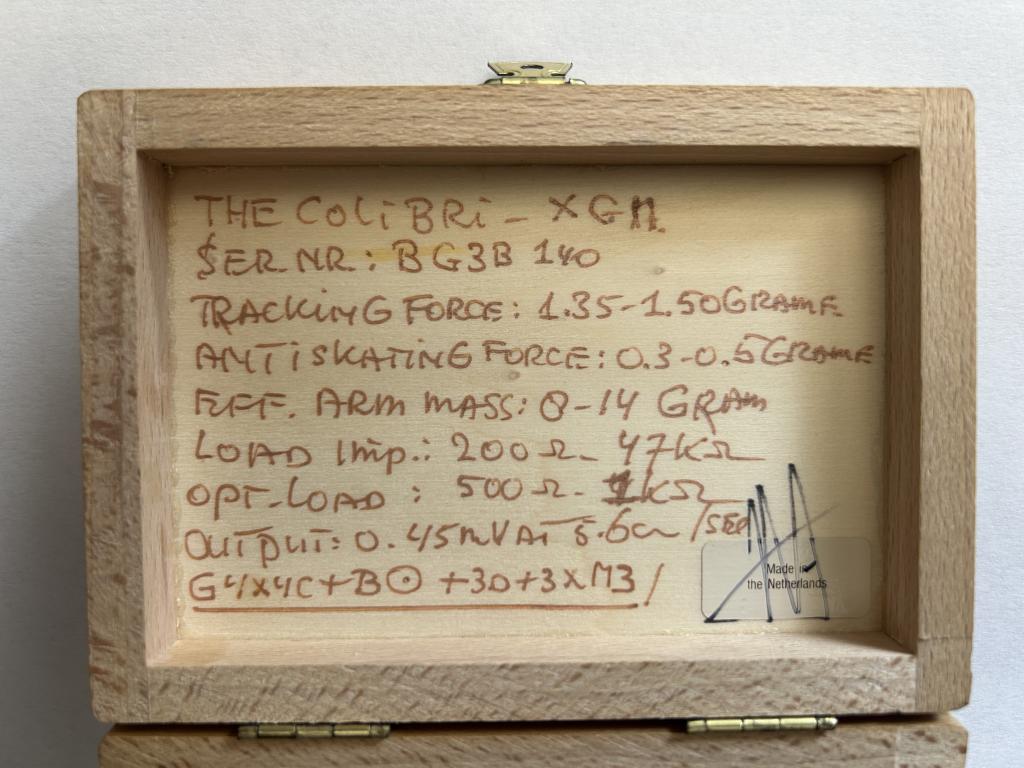 THE COLiBRi - XGM
SER. NR.: BG3B 140
TRACKING FORCE: 1.35-1.50 GRAME
ANTISKATING FORCE: 0.3-0.5 GRAME
EFF. ARM MASS: 8-14 GRAM
LOAD Imp.: 200Ω - 47KΩ
OPT-LOAD : 500Ω - 1KΩ
OUTPUT: 0.45mV AT 5.6cm/SEC
G4X4C+B⊙ +3D+3XM3/
Made in
the Netherlands